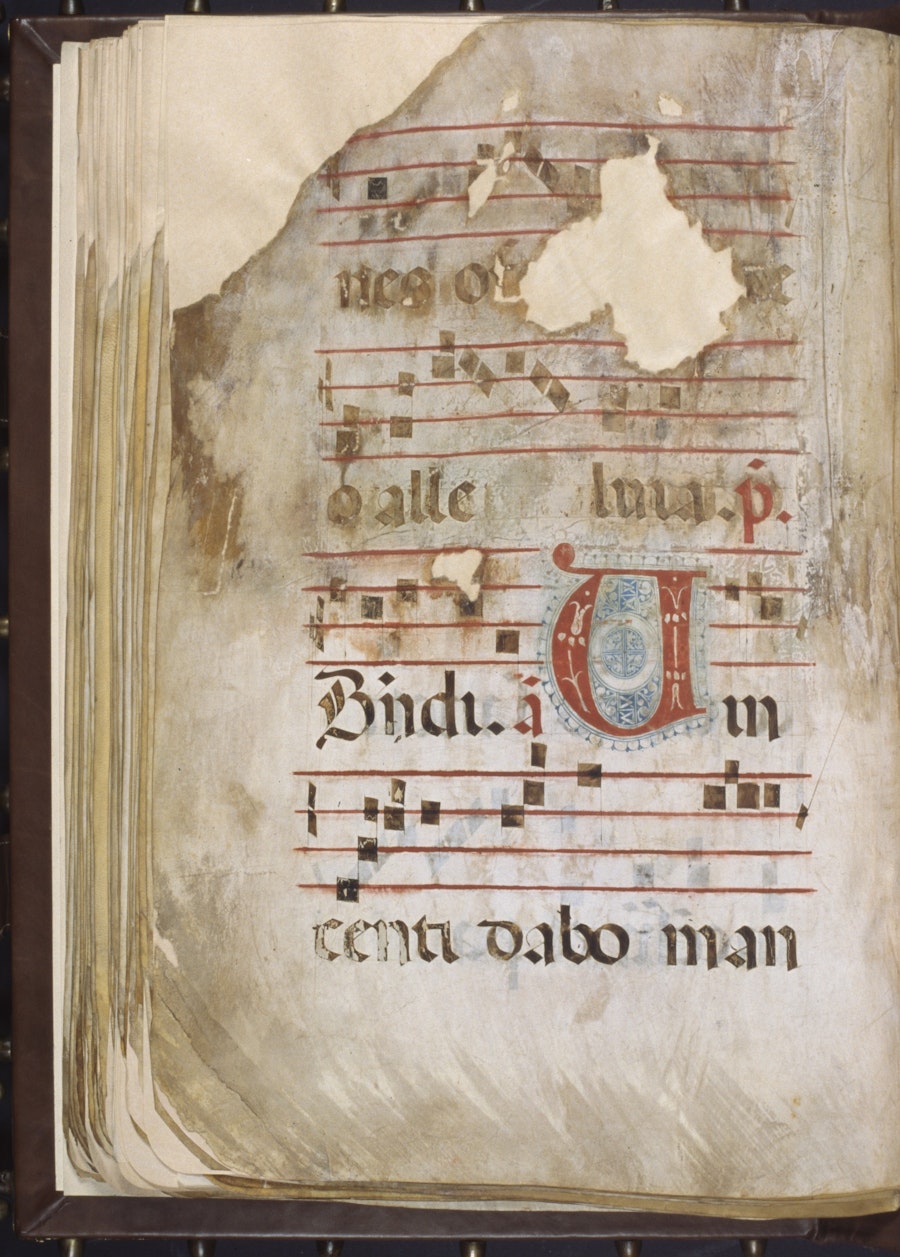 nes
o alle luia. p̄.
Bn̄dı. ā Uın
centi dabo man